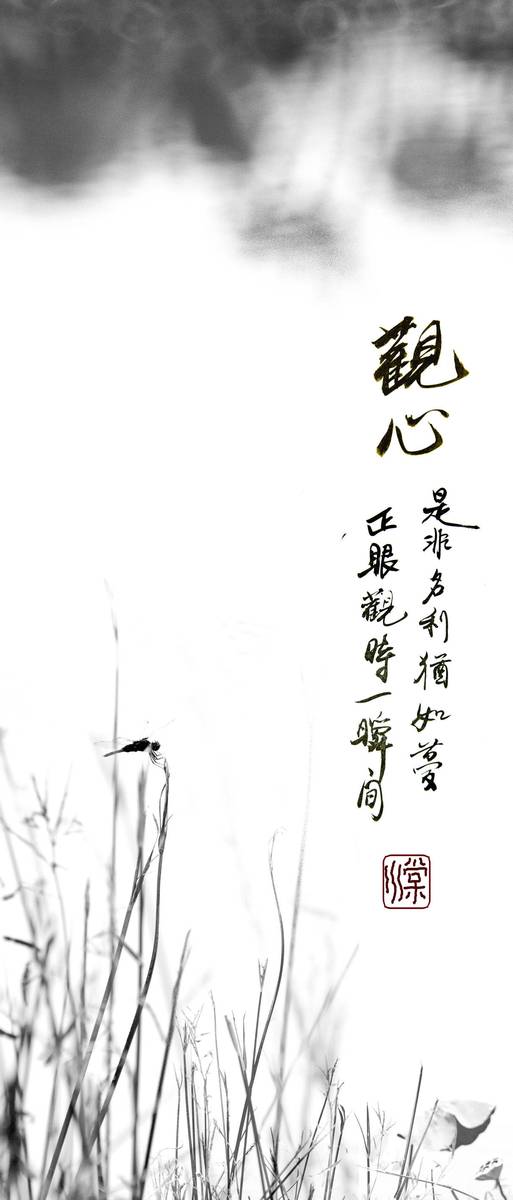 觀心
是非名利猶如夢
正眼觀時一瞬间